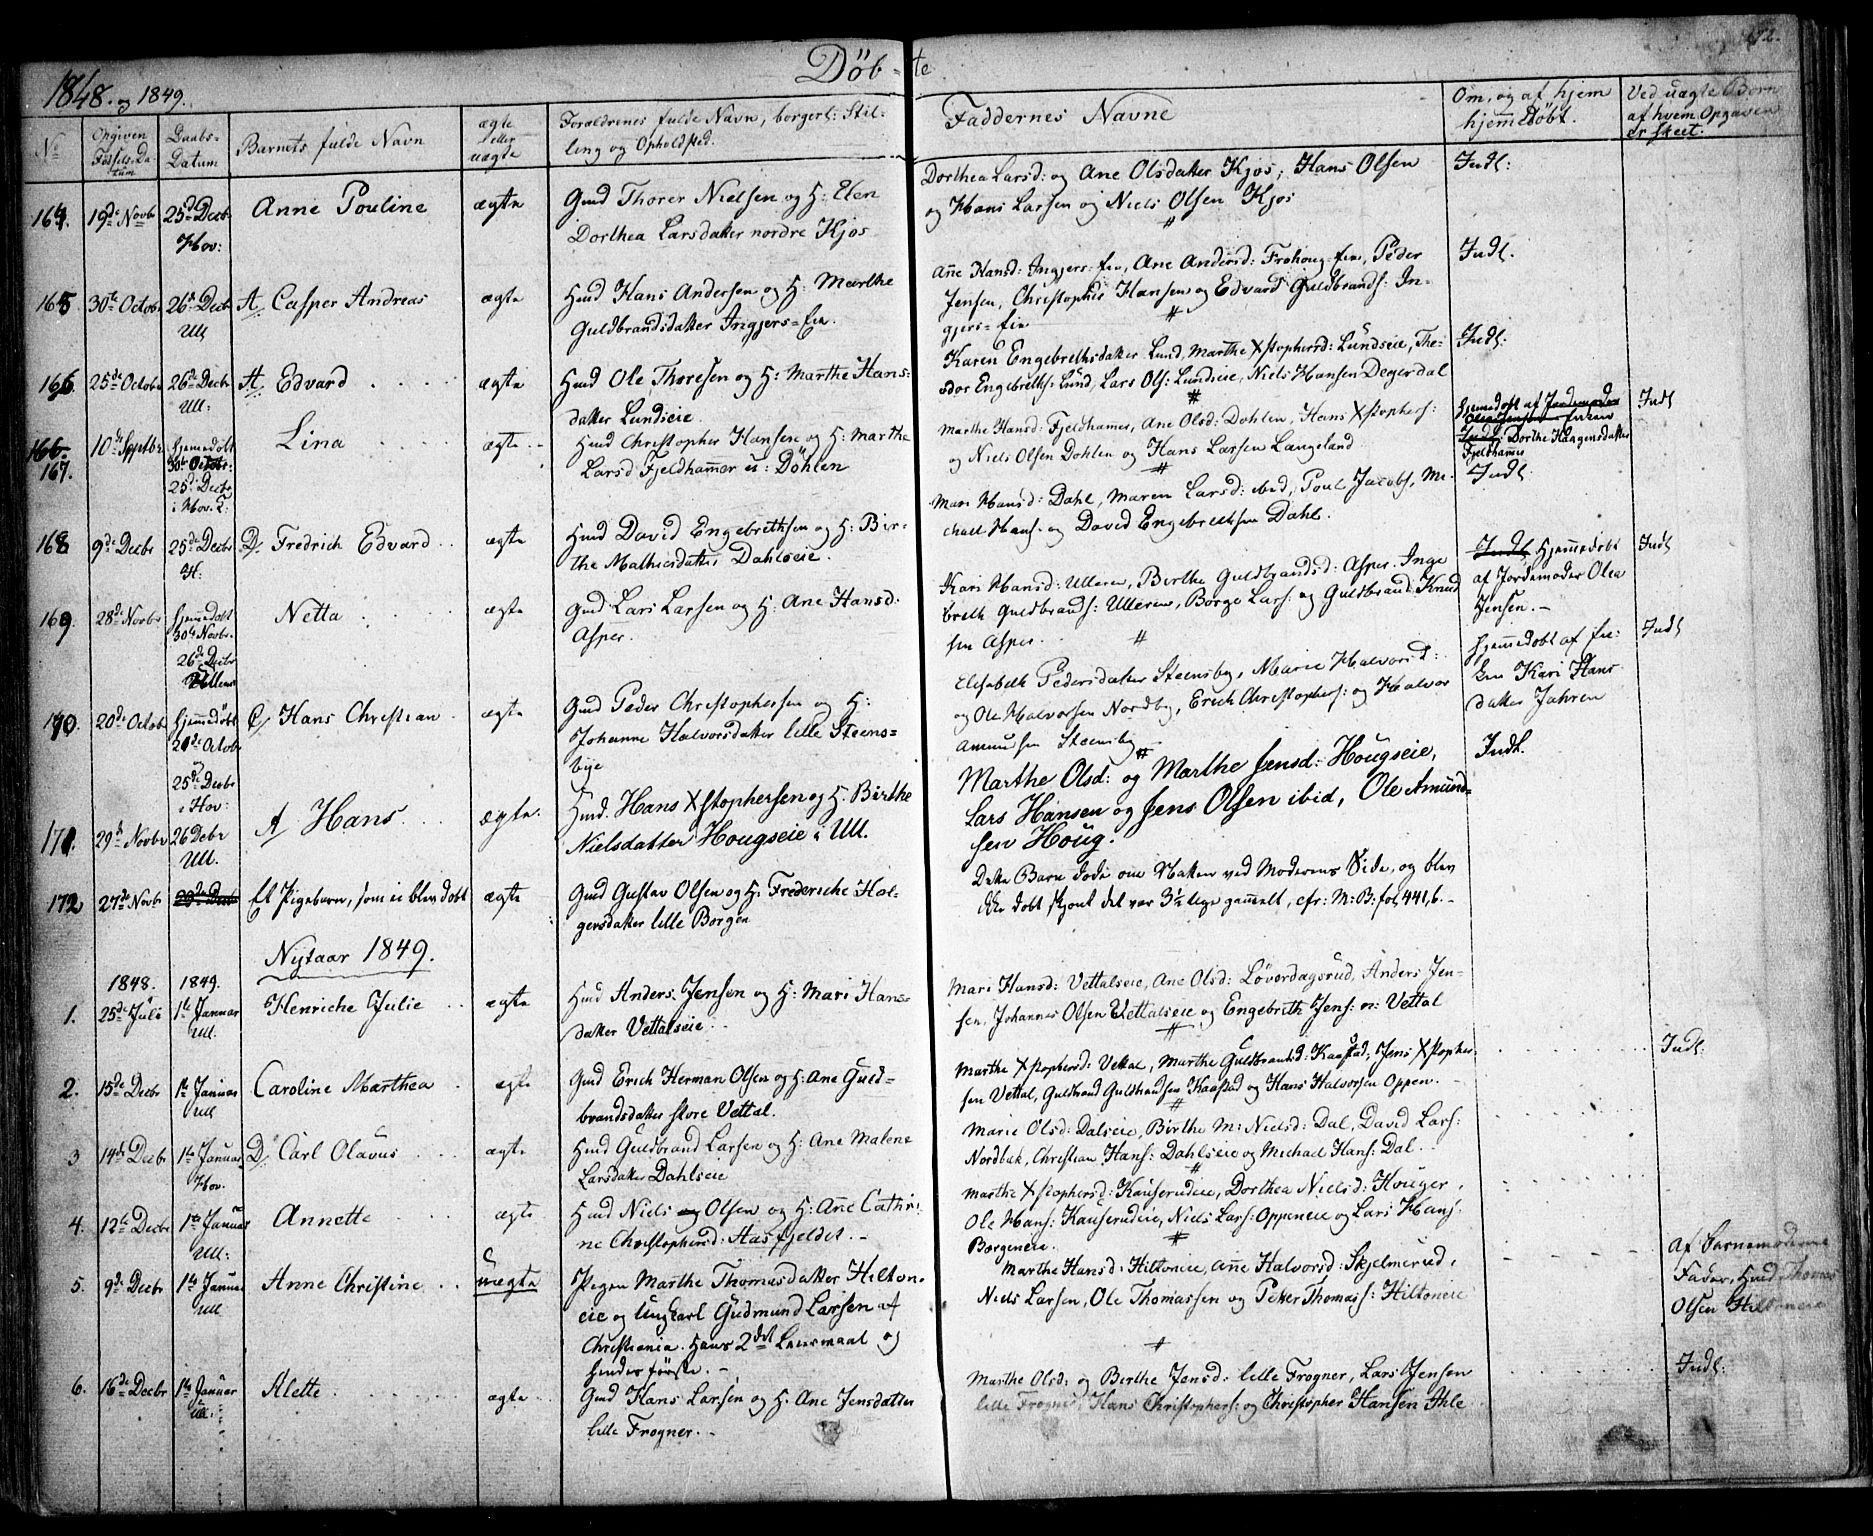 1848. og 1849.
Döb-te
172.
No
Opgiven Födsels-Datum
Daabs-Datum
Barnets fulde Navn
ægte eller uægte
Forældrenes fulde Navn, borgerl: Stilling og Opholdsted.
Faddernes Navne
Om, og af hjem hjemmedöbt.
Ved uægte Börn af hvem Opgaven er skeet.
164. 19de Novbr 25de Decbr Hov: Anne Pouline ægte
Gmd Thorer Nielsen og H: Elen
Dorthea Larsdatter nordre Kjos
Dorthea Larsd: og Ane Olsdatter Kjos, Hans Olsen
og Hans Larsen og Niels Olsen Kjos
Indl:
165 30te Octobr 26de Decbr Ull A. Casper Andreas ægte
Hmd Hans Andersen og H: Marthe
Guldbrandsdatter Ingjers=eie.
Ane Hansd: Ingjers=eie, Ane Andersd: Frohoug-eie, Peder
Jensen, Christopher Hansen og Edvard Guldbrands: In-
gjers=eie
Indl.
166 25de Octobr 26de Decbr Ull: A. Edvard ægte
Hmd Ole Thoresen og H: Marthe Hans=
datter Lundseie
Karen Engebrethsdatter Lund, Marthe Xstophersd: Lundseie, The-
odor Engebreths: Lund, Lars Ols: Lundseie, Niels Hansen Degerdal
Indl:
166. 167. 10de Septbr Hjemmedöbt 30te Octobr: 25de Decbr i Hov. K: Lina ægte
Hmd Christopher Hansen og H: Marthe
Larsd: Fjeldhammer u: Döhlen
Marthe Hansd: Fjeldhamer, Ane Olsd: Dohlen, Hans Xstophers:
og Niels Olsen Dohlen og Hans Larsen Langeland
Hjemedöbt af Jordemoder
Dorthe Haagensdatter
Fjeldhamer
Indl
168 9de Decbr 25de Decbr H: D. Fredrich Edvard ægte
Hmd David Engebrethsen og H: Bir-
the Mathiesdatter Dahlseie.
Mari Hansd: Dahl, Maren Larsd: ibid, Poul Jacobs, Mi-
chael Hans: og David Engebrethsen Dahl.
Indl:
169. 28de Novbr Hjemedöbt 30te Novbr. 26de Decbr Ullens: Netta ægte
Gmd Lars Larsen og H: Ane Hansd:
Asper.
Kari Hansd: Ulleren, Birthe Guldbrandsd: Asper. Inge
breth Guldbrands: Ulleren, Borge Lars: og Guldbrand Knud
sen Asper.
Indl Hjemmedöbt
af Jordemoder Olea
Jensen.
Indl
170. 20de Octobr Hjemedöbt 21de Octobr 25de Decbr i Hov: C/ Hans Christian ægte
Gmd Peder Christophersen og H:
Johanne Halvorsdatter lille Steens=
bye
Elisabeth Pedersdatter Steensby, Marie Halvorsd:
og Ole Halvorsen Nordby, Erich Christophers: og Halvor
Amundsen Steensby
Hjemmedöbt af En-
ken Kari Hans
datter Jahren
Indl
171. 29de Novbr 26 Debr Ull. A/ Hans ægte.
Hmd. Hans Xstophersen og H. Birthe
Nielsdatter Hougseie i Ull.
Marthe Olsd: og Marthe Jensd: Hougseie,
Lars Hansen og Jens Olsen ibid, Ole Amund-
sen Houg.
Indl.
172 27de Novbr Et Pigebarn, som ei blev döbt ægte
Gmd Gustav Olsen og H. Frederiche Hol-
gersdatter lille Borgen
Dette Barn döde om Natten ved Moderens Side, og blev
ikke döbt skjönt det var 3½ Uge gammelt, cfr: M: B: fol, 441, 6.
Nytaar 1849.
1848. 1849.
1. 25de Juli 1te Januar Ull. Henriche Julie ægte
Hmd Anders Jensen og H: Mari Hans=
datter Vettalseie
Mari Hansd: Vettalseie, Ane Olsd: Lövordagsrud, Anders Jen-
sen, Johannes Olsen Vettalseie og Engebreth Jens: n: Vettal
Indl:
2. 15de Decbr 1te Januar Ull Caroline Marthea ægte
Gmd Erich Herman Olsen og H: Ane Guld-
brandsdatter store Vettal.
Marthe Xstophersd: Vettal, Marthe Guldbrandsd: Kaastad, Jens Xstopher-
sen Vettal, Guldbrand Guldbrandsen Kaastad og Hans Halvorsen Oppen.
3 14de Decbr 1te Januar Hov. D. Carl Olavus ægte
Hmd Guldbrand Larsen og H: Ane Malene
Larsdatter Dahlseie
Marie Olsd: Dalseie, Birthe M: Nielsd: Dal, David Lars:
Nordbak, Christian Hans: Dahlseie og Michael Hans: Dal.
4. 12te Decbr 1te Januar Ull: Annette ægte
Hmd Niels Olsen og H: Ane Cathri-
ne Christophersd: Hasfjeldet.
Marthe Xstophersd: Kauserudeie, Dorthea Nielsd: Houger,
Ole Hans: Kauserudeie, Niels Lars: Oppeneie og Lars Hans:
Borgeneie.
5. 9de Decbr 1te Januar Ull Anne Christine uægte
Pigen Marthe Thomasdatter Hilton-
eie og Ungkarl Gudmund Larsen af
Christiania. Hans 2det Leiermaal og
hendes förste.
Marthe Hansd: Hiltoneie, Ane Halvorsd: Skjelmerud,
Niels Larsen, Ole Thomassen og Petter Thomass: Hiltoneie
Af Barnemoderens
Fader, Hmd Thomas
Olsen Hiltoneie
6. 16de Decbr 1te Januar Ull. Alette ægte
Gmd Hans Larsen og H. Ane Jensdatter
lille Frogner.
Marthe Olsd: og Birthe Jensd: lille Frogner, Lars Jensen
lille Frogner, Hans Christophers: og Christopher Hansen Ihle
Indl: